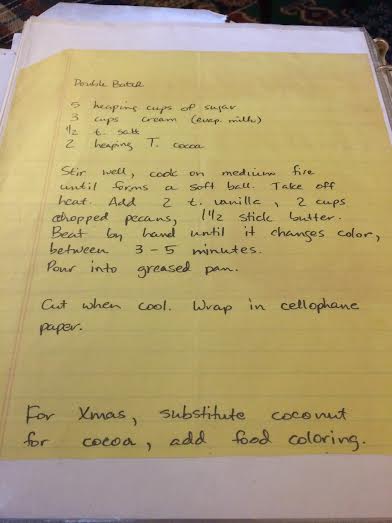 Double Batch
5 heaping cups of sugar
3 cups cream (evap. milk)
1/2 t. salt
2 heaping T. cocoa
Stir well, cook on medium fire
until forms a soft ball. Take off
heat. Add 2 t. vanilla, 2 cups
chopped pecans, 1 1/2 stick butter.
Beat by hand until it changes color,
between 3-5 minutes.
Pour into greased pan.
Cut when cool. Wrap in cellophane
paper.
For Xmas, substitute coconut
for cocoa, add food coloring.